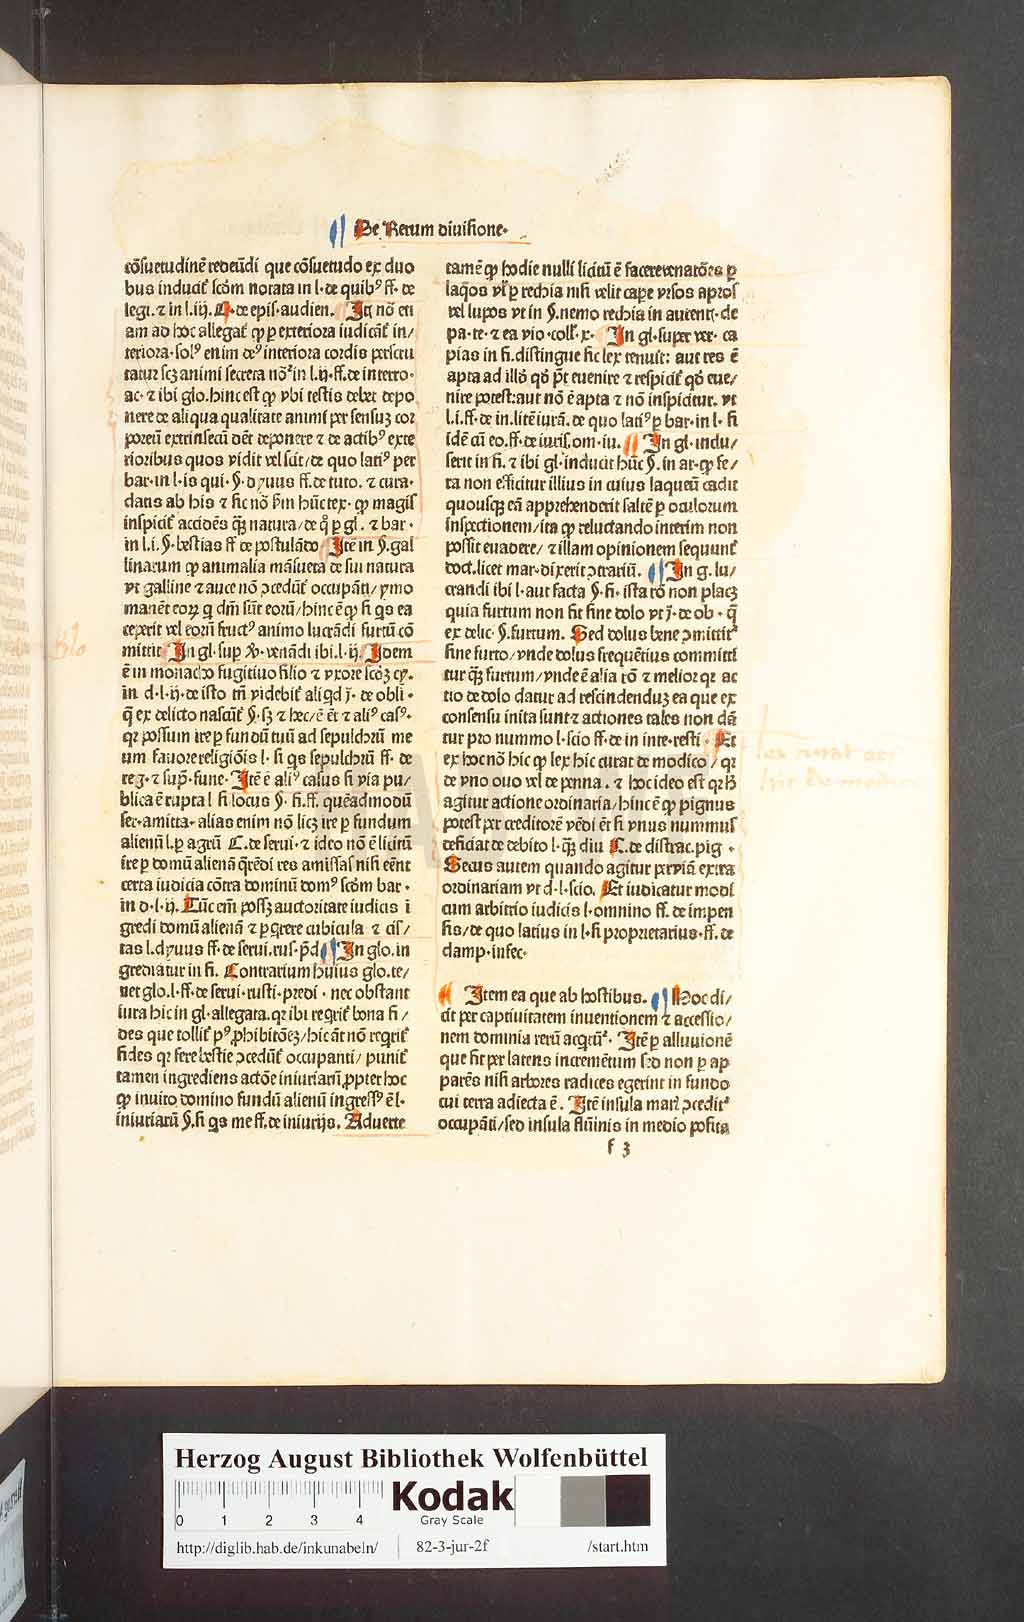 De Rerum diuisione.
cōsuetudinē redeūdi que cōsuetudo ex duo
bus inducit᷑ scōm notata in l. de quibꝰ ff. de
legi. ⁊ in l. iij. C. de epis. audien. Itē nō eti
am ad hoc allegat᷑ ꝙ ꝑ exteriora iudicāt᷑ in/
teriora. solꝰ enim deꝰ interiora cordis perscru
tatur scꝫ animi secreta in l. ij. ff. de interro.
ac. ⁊ ibi glo. hinc est ꝙ vbi testis debet depo
nere de aliqua qualitate animi per sensuꝫ cor
poreū extrinsecū dēt deponere ⁊ de actibꝰ exte
rioribus quos vidit vel scit/ de quo latiꝰ per
bar. in l. is qui. §. dyuus ff. de tuto. ⁊ cura.
datis ab his ⁊ sic nō ꝑ̄m hūc tex. ꝙ magis
inspicit᷑ accidēs q̄ꝫ natura/ de q̊ ꝑ gl. ⁊ bar.
in l. i. §. bestias ff de postulādo Itē in §. gal
linarum ꝙ animalia māsueta de sui natura
vt galline ⁊ auce nō ꝯcedūt᷑ occupāti/ ymo
manēt eoꝝ ꝗ dn̄i sūt eorū/ hinc ē ꝙ si ꝗs ea
ceperit vel eorū fructꝰ animo lucrādi furtū cō
mittit In gl. sup ꝟ. venādi ibi. l. ij. Idem
ē in monacho fugitiuo filio ⁊ vxore scōꝫ cy.
in d. l. ij. de isto tn̄ videbit᷑ aliqd j. de obli.
q̄ ex delicto nascūt᷑ §. sꝫ ⁊ hec/ ē ēt ⁊ aliꝰ casꝰ.
qꝛ possum ire ꝑ fundū tuū ad sepulchrū me
um fauore religiōis l. si ꝗs sepulchrū ff. de
reg. ⁊ sup̄. fune. Itē ē aliꝰ casus si via pu/
blica ē rupta l si locus §. fi. ff. quēadmodū
ser. amitta. alias enim nō licꝫ ire ꝑ fundum
alienū l. ꝑ agrū C. de serui. ⁊ ideo nō ē licitū
ire ꝑ domū alienā q̄rēdi res amissas nisi eēnt
certa iudicia cōtra dominū domꝰ scōm bar.
in d. l. ij. Tūc em̄ possꝫ auctoritate iudicis ī
gredi domū alienā ⁊ ꝑqrere cubicula ⁊ cis/
tas l. dyuus ff. de serui. rus. p̄d In glo. in
grediatur in fi. Contrarium huius glo. te/
net glo. l. ff. de serui. rusti. predi. nec obstant
iura hic in gl. allegata. qꝛ ibi reqrit᷑ bona fi/
des que tollit᷑ pꝰ ꝓhibitōeꝫ/ hic āt nō reqrit᷑
fides qꝛ fere bestie ꝯcedūt᷑ occupanti/ punit᷑
tamen ingrediens actōe iniuriarū ꝓpter hoc
ꝙ inuito domino fundū alienū ingressꝰ ē l.
iniuriarū §. si ꝗs me ff. de iniurijs. Aduerte
tamē ꝙ hodie nulli licitū ē facere venatōes ꝑ
laq̄os vꝉ ꝑ rechia nisi velit capere vrsos apros
vel lupos vt in §. nemo rechia in autent. de
pa. te. ⁊ ea vio. coll. x. In gl. super ver. ca
pias in fi. distingue sic lex tenuit: aut res ē
apta ad illō qō pt̄ euenire ⁊ respicit᷑ qō eue/
nire potest: aut nō ē apta ⁊ nō inspicitur. vt
l. i. ff. de in. litē iurā. de quo latiꝰ ꝑ bar. in l. si
idē cū eo. ff. de iuris. om. iu. In gl. indu/
serit in fi. ⁊ ibi gl. inducit hūc §. in ar. ꝙ fe/
ra non efficitur illius in cuius laqueū cadit
quousqꝫ eā apprehenderit saltē ꝑ oculorum
inspectionem/ ita ꝙ reluctando interim non
possit euadere/ ⁊ illam opinionem sequunt᷑
doct. licet mar. dixerit ꝯtrariū. In g. lu/
crandi ibi l. aut facta §. fi. ista rō non placꝫ
quia furtum non fit sine dolo vt j. de ob. q̄
ex delic. §. furtum. Sed dolus bene ꝯmittit᷑
sine furto/ vnde dolus frequētius committi
tur q̄ꝫ furtum/ vnde ē alia rō ⁊ melior qꝛ ac
tio de dolo datur ad rescindenduꝫ ea que ex
consensu inita sunt ⁊ actiones tales non dā
tur pro nummo l. scio ff. de in inte. resti. Et
ex hoc nō hic ꝙ lex hic curat de modico/ qꝛ
de vno ouo vel de penna. ⁊ hoc ideo est qꝛ h̄
agitur actione ordinaria/ hinc ē ꝙ pignus
potest per creditorē vēdi et si vnus nummus
deficiat de debito l. q̄ꝫ diu C. de distrac. pig.
Secus autem quando agitur per viā extra
ordinariam vt d. l. scio. Et iudicatur modi
cum arbitrio iudicis l. omnino ff. de impen
sis/ de quo latius in l. si proprietarius. ff. de
damp. infec.
Item ea que ab hostibus. Hoc di/
cit per captiuitatem inuentionem ⁊ accessio/
nem dominia rerū acqrūt᷑. Itē ꝑ alluuionē
que fit per latens incremētum sed non ꝑ ap
parēs nisi arbores radices egerint in fundo
cui terra adiecta ē. Itē insula mari ꝯcedit᷑
occupāti/ sed insula flūinis in medio posita
f 3
Herzog August Bibliothek Wolfenbüttel
0 1 2 3 4
Kodak
Gray Scale
http://diglib.hab.de/inkunabeln/ 82-3-jur-2f /start.htm